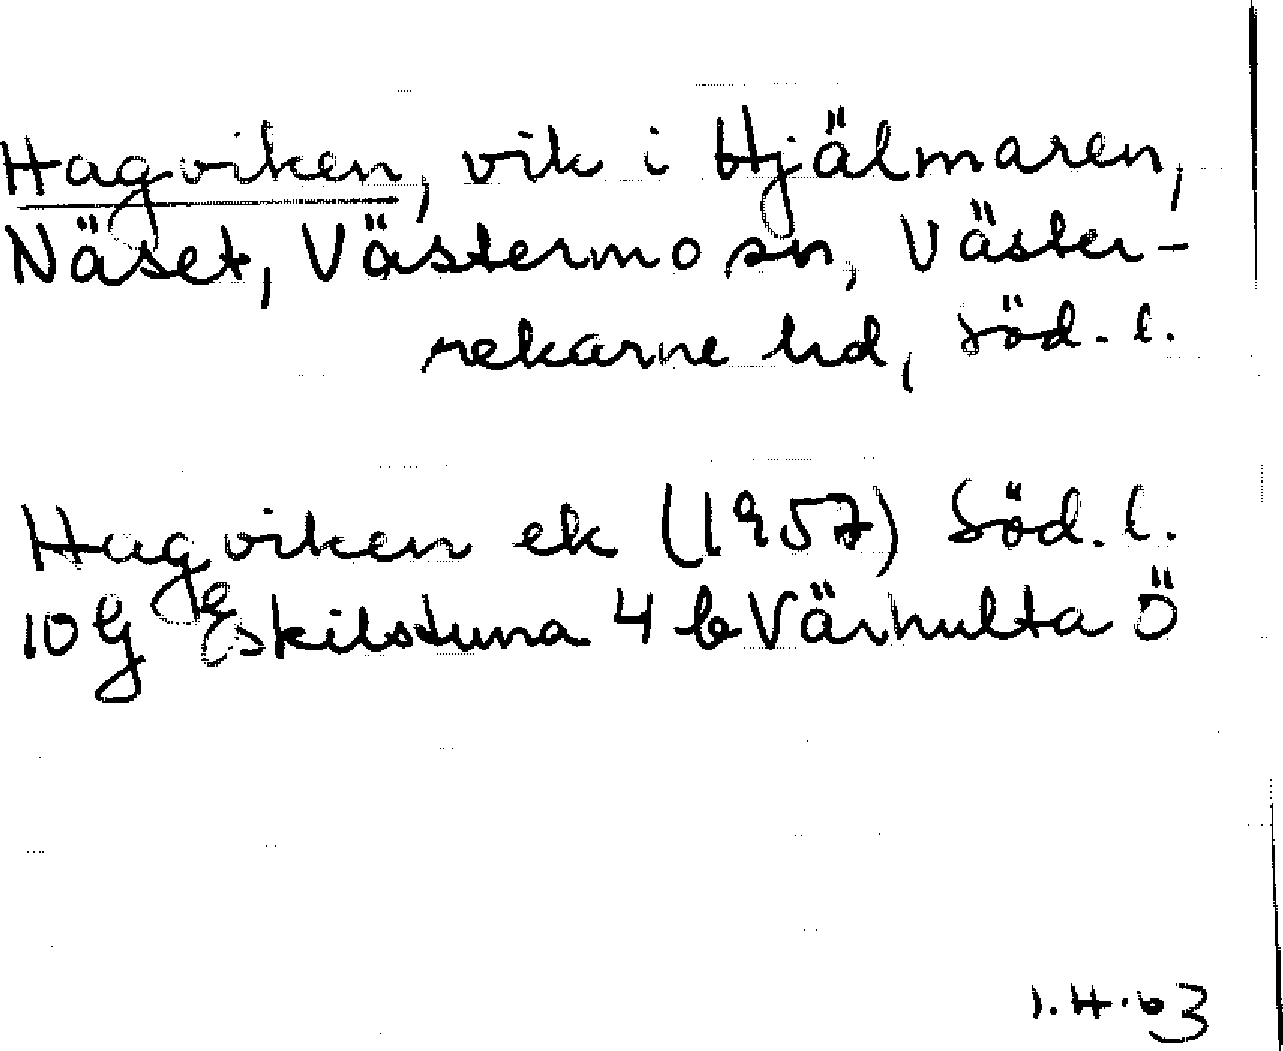 Hagviken, vik i Hjälmaren,
Näset, Västermo sn, Väster-
rekarne hd, Söd. l.
Hagviken ek (1957) Söd. l.
10 G Eskilstuna 4 b Värhulta Ö
I.H. 63